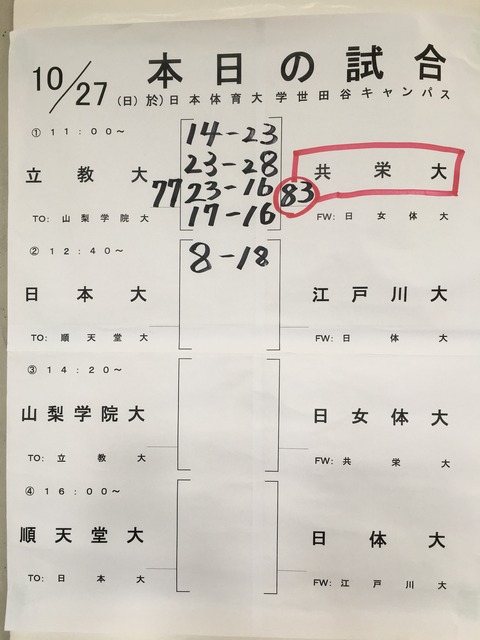 本日の試合
10/27(日)於)日本体育大学世田谷キャンパス
①11:00~
14-23
立教大 23-28 共栄大
77 23-16 83
TO:山梨学院大 17-16 FW:日女体大
②12:40~ 8-18
日本大 江戸川大
TO:順天堂大 FW:日体大
③14:20~
山梨学院大 日女体大
TO:立教大 FW:共栄大
④16:00~
順天堂大 日体大
TO:日本大 FW:江戸川大